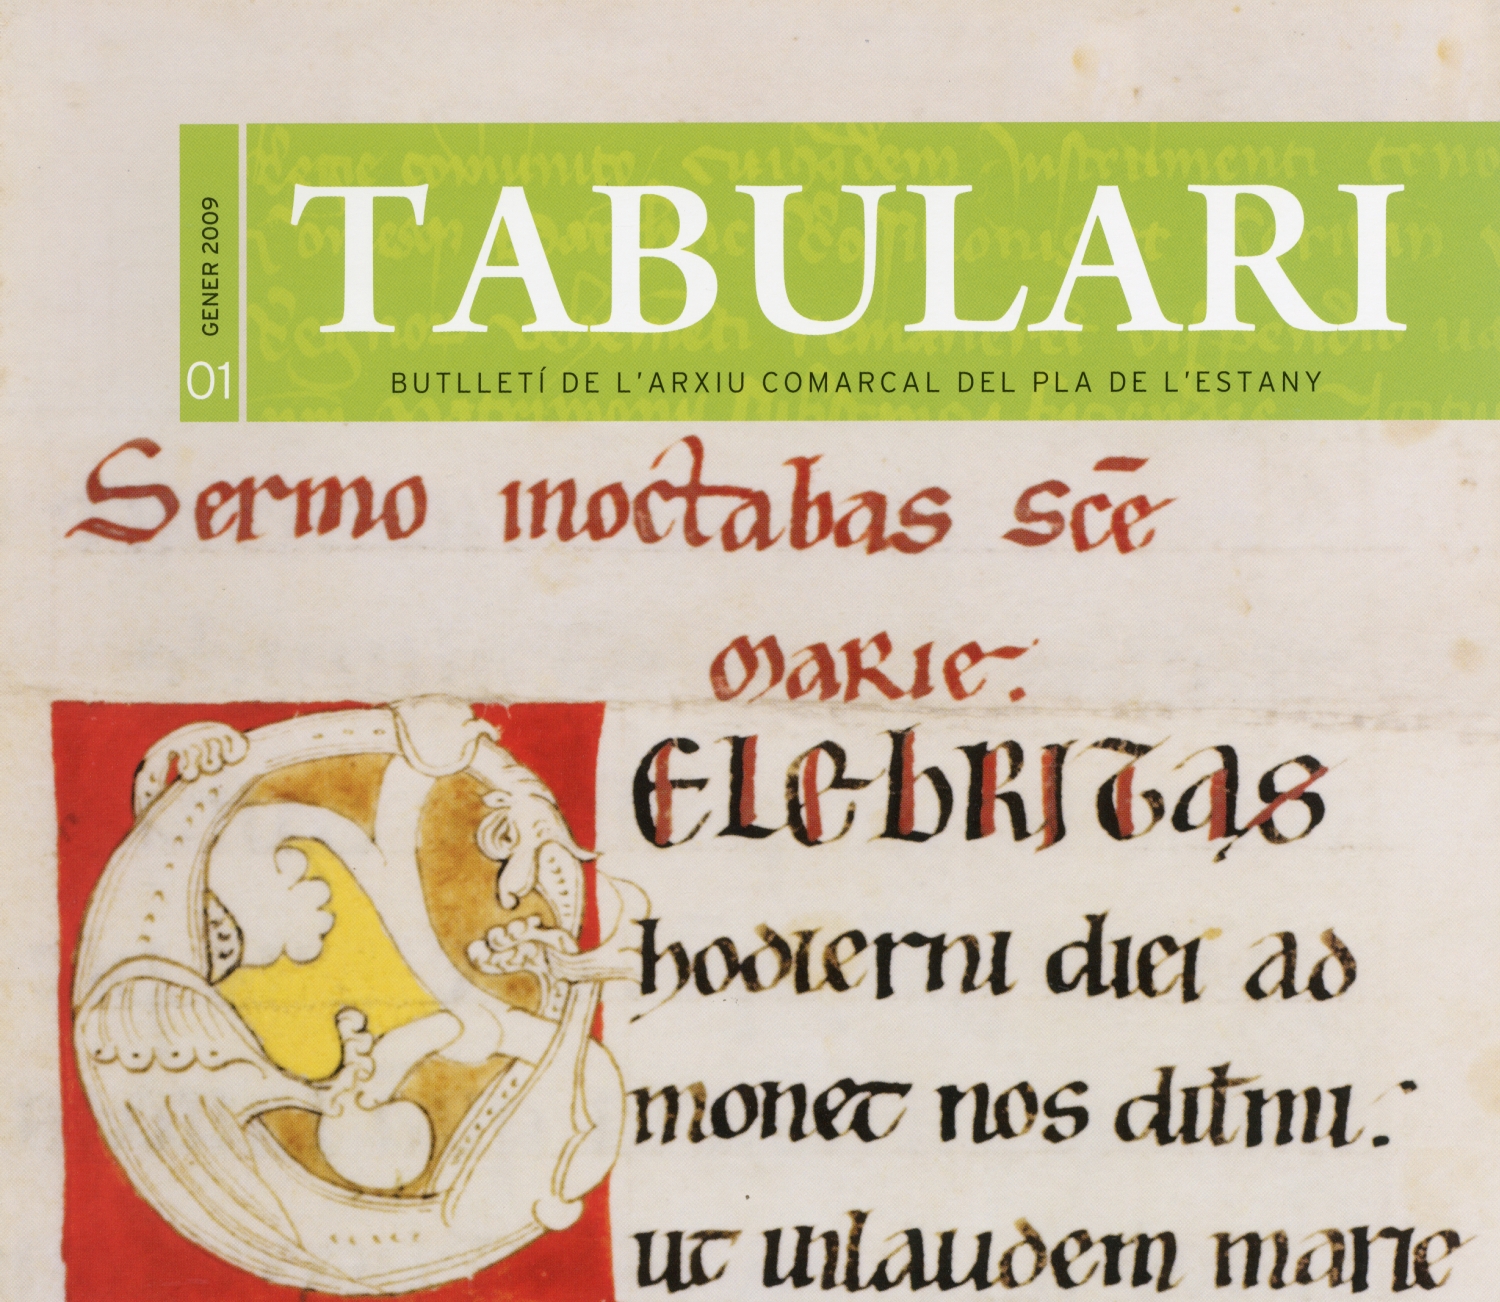 GENER 2009
01
TABULARI
BUTLLETÍ DE L'ARXIU COMARCAL DEL PLA DE L'ESTANY
Sermo inoctabas sc̄e
marie.
ELEbRITAS
hodierni diei ad
monet nos
ut inlaudem marie